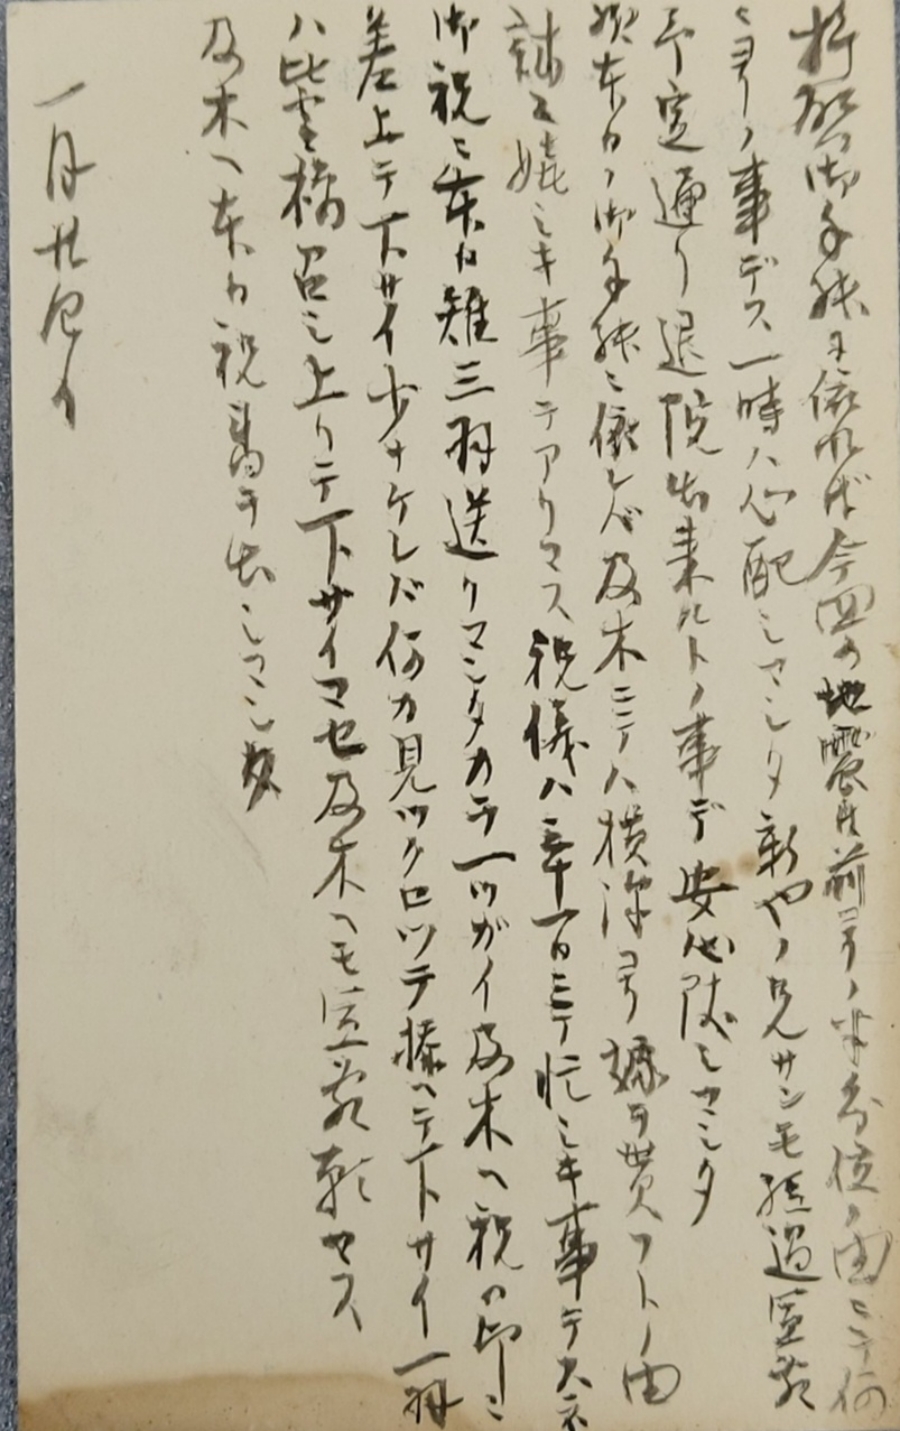 拝啓御手紙に依れば今回の地震も前ヨリノ半分位ノ由ニテ何
ヨリノ事デス一時ハ心配シマシタ新やノ兄サンモ経過宜敷
予定通リ退院出来ルトノ事デ安心致シマシタ
本日ノ御手紙ニ依レバ及木ニテハ横深ヨリ嫁ヲ貰フトノ由
誠ニ嬉シキ事デアリマス祝儀ハ三十一日ニテ忙シキ事デス
御祝ニ本日雉三羽送リマシタカラ一ツガイ及木ヘ祝の印ニ
差上テ下サイ少ナケレバ何カ見ツクロツテ揉ヘテ下サイ一羽
ハ皆々様召シ上リテ下サイマセ及木ヘモ宜敷願マス
及木ヘ本日祝書ヲ出シマシタ
一月廿七日